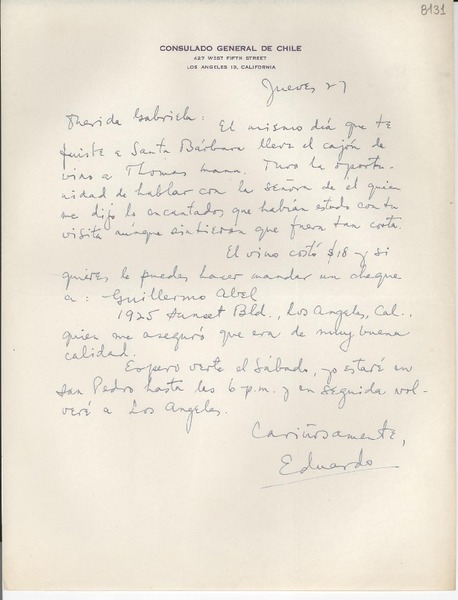 8131
CONSULADO GENERAL DE CHILE
427 WEST FIFTH STREET
LOS ANGELES 13, CALIFORNIA
Jueves 27
Querida Gabriela:
El mismo día que te
fuiste a Santa Bárbara llevé el cajón de
vino a Thomas Mann. Tuve la oportu-
nidad de hablar con la señora de él quien
me dijo lo encantados que habían estado con tu
visita aunque sintieran que fuera tan corta.
El vino costó $18 y si
quieres le puedes hacer mandar un cheque
a: Guillermo Abel
1925 Sunset Bld., Los Angeles, Cal.,
quien me aseguró que era de muy buena
calidad.
Espero verte el Sábado, yo estaré en
San Pedro hasta las 6 p.m. y en seguida vol-
veré a Los Angeles.
Cariñosamente,
Eduardo